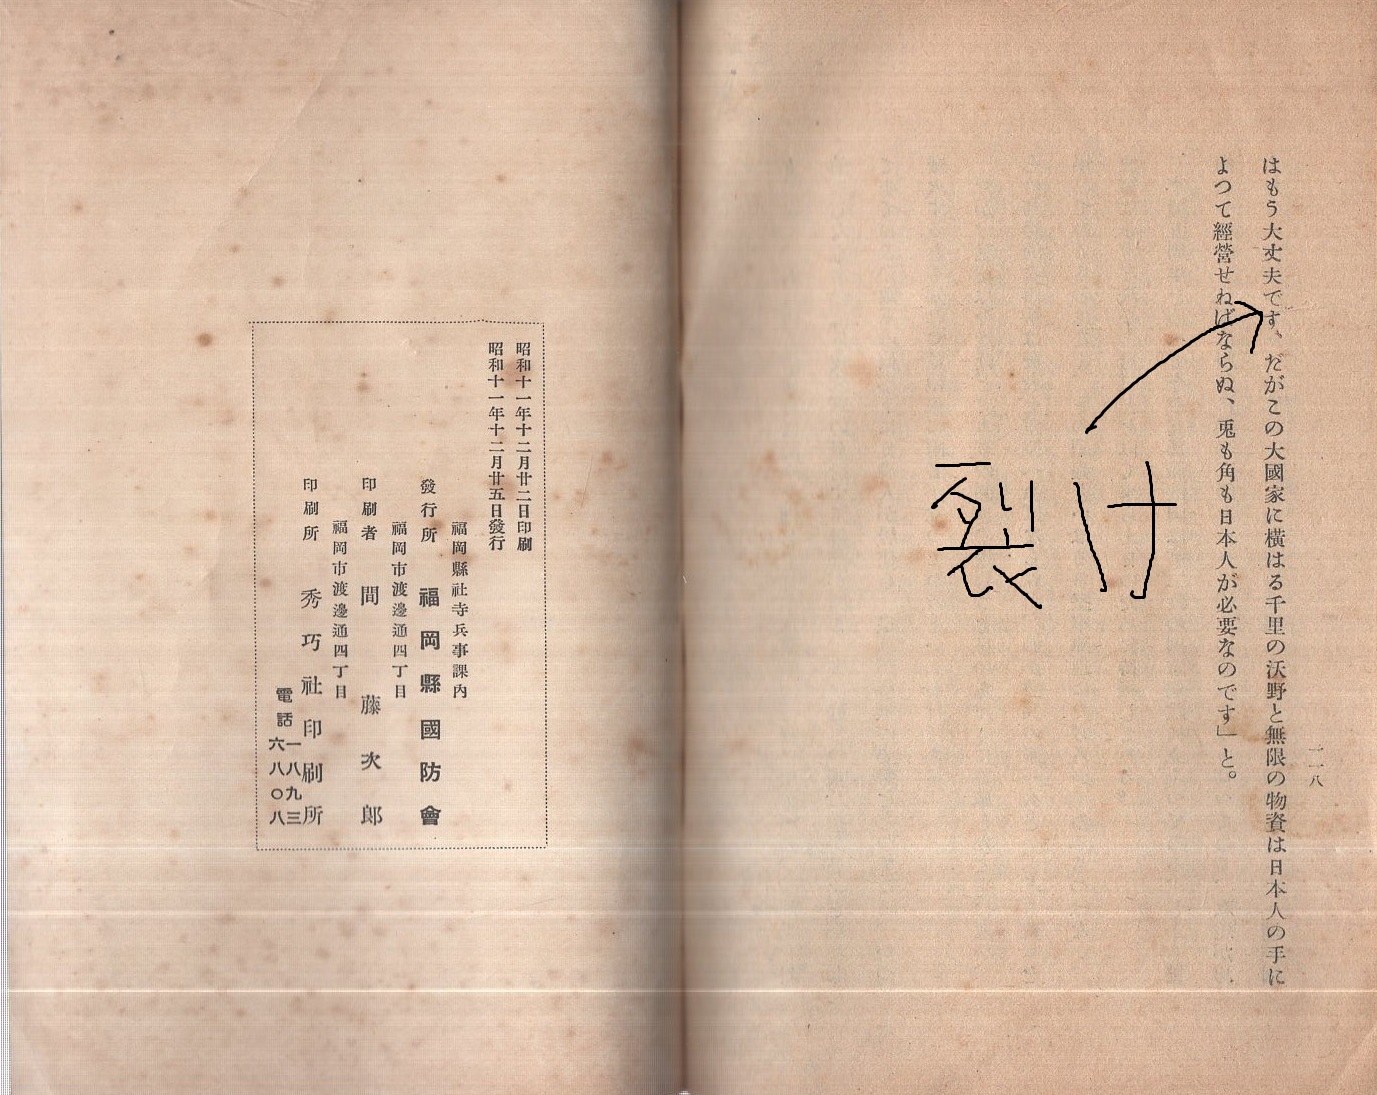 一一八
はもう大丈夫です、だがこの大國家に横はる千里の沃野と無限の物資は日本人の手に
よつて經營せねばならぬ、兎も角も日本人が必要なのです」と。
裂け
昭和十一年十二月廿二日印刷
昭和十一年十二月廿五日發行
福岡縣社寺兵事課內
發行所 福岡縣國防會
福岡市渡邊通四丁目
印刷者 間 藤次郎
福岡市渡邊通四丁目
印刷所 秀巧社印刷所
電話 一八九三
六八〇八